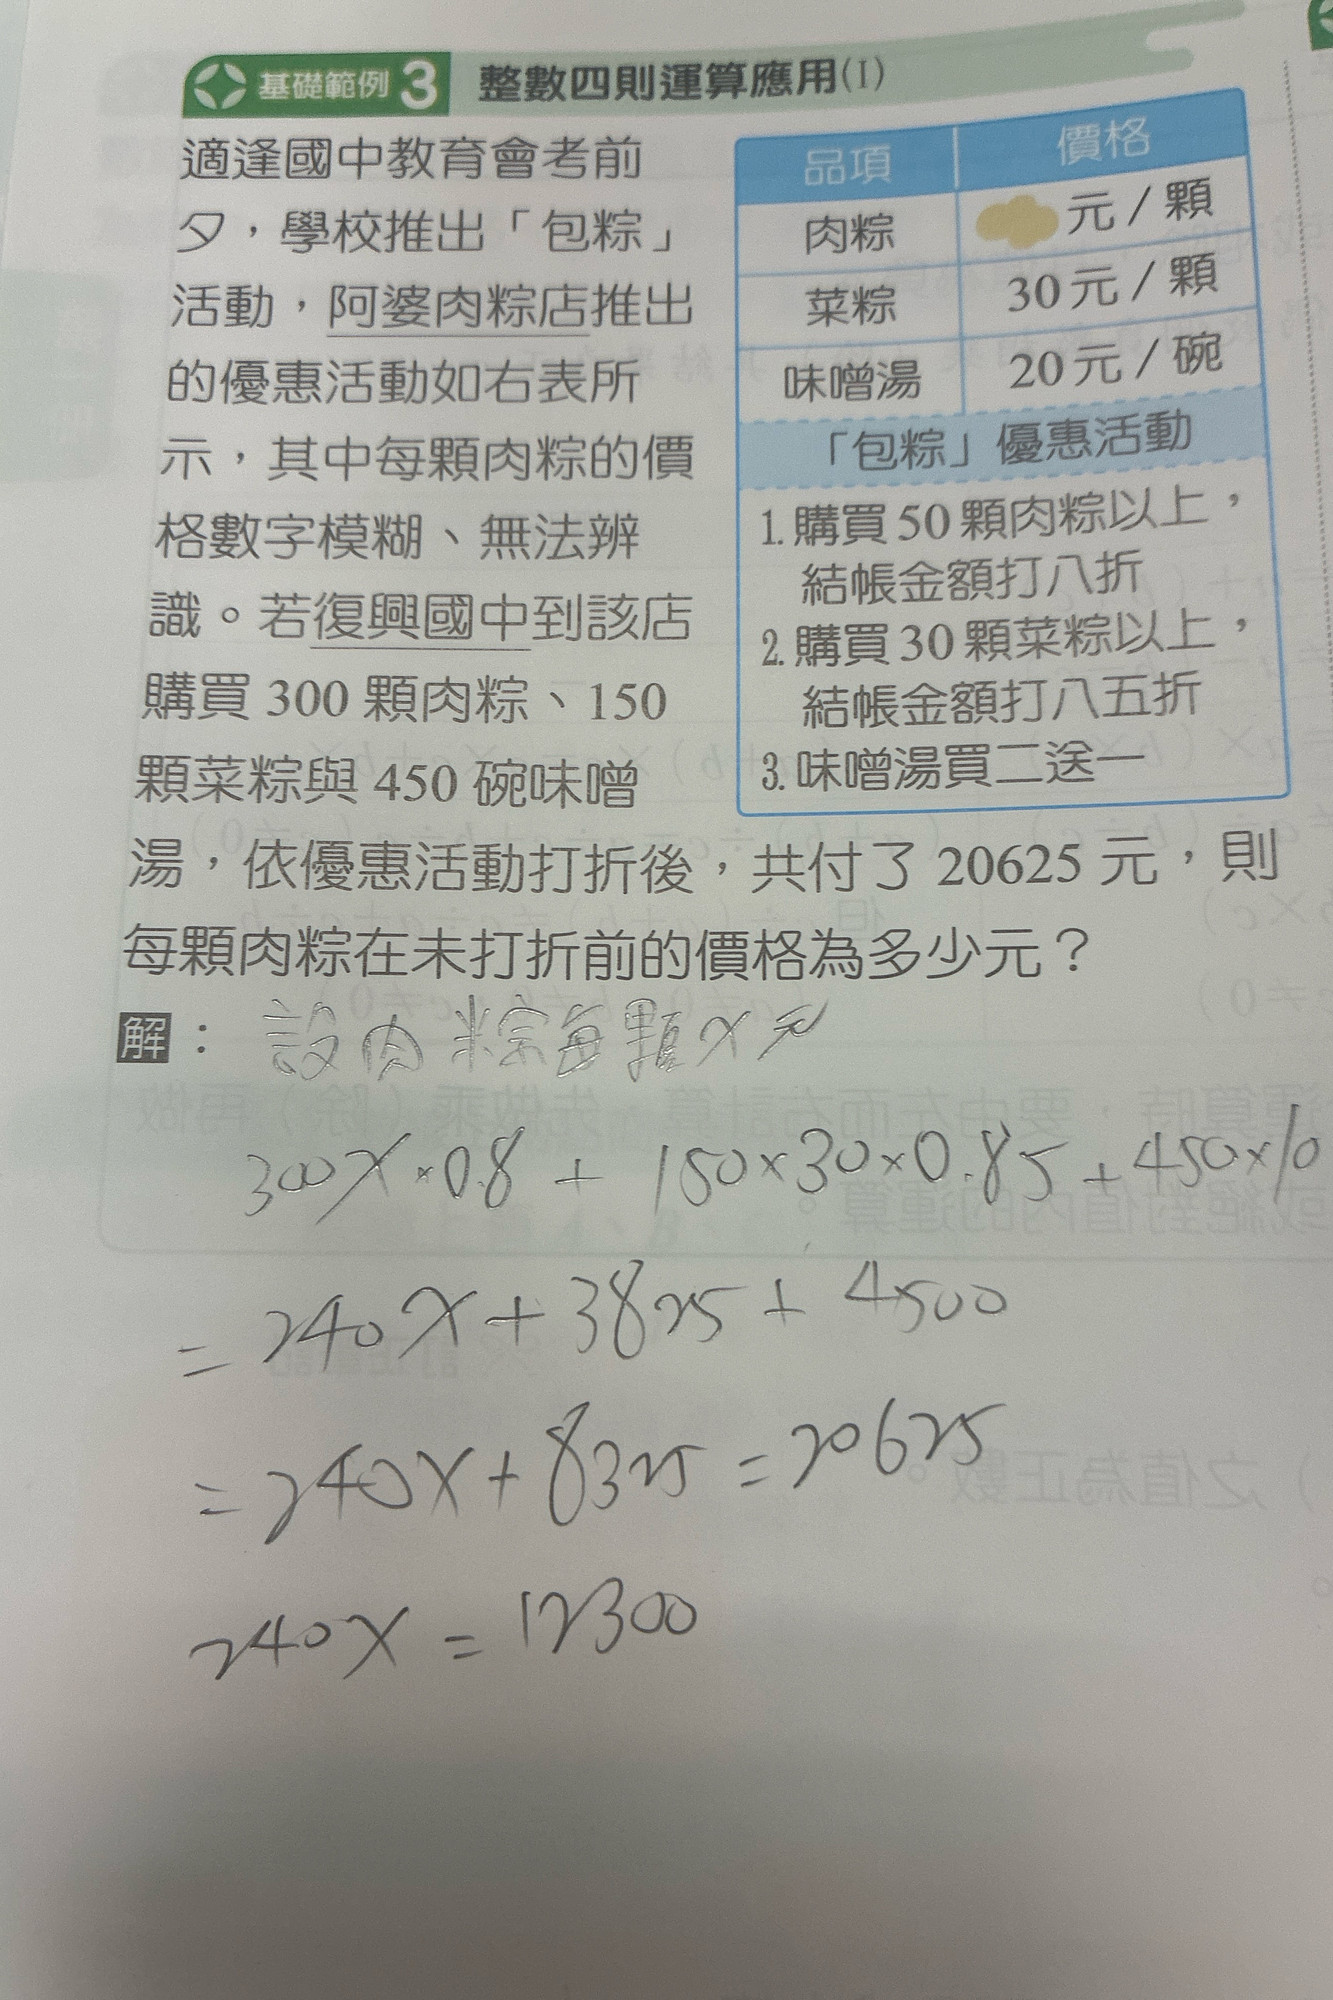 基礎範例 3 整數四則運算應用(I)
適逢國中教育會考前
夕，學校推出「包粽」
活動，阿婆肉粽店推出
的優惠活動如右表所
示，其中每顆肉粽的價
格數字模糊、無法辨
識。若復興國中到該店
購買 300 顆肉粽、150
顆菜粽與 450 碗味噌
湯，依優惠活動打折後，共付了 20625 元，則
每顆肉粽在未打折前的價格為多少元？
品項 價格
肉粽 元／顆
菜粽 30 元／顆
味噌湯 20 元／碗
「包粽」優惠活動
1. 購買 50 顆肉粽以上，
結帳金額打八折
2. 購買 30 顆菜粽以上，
結帳金額打八五折
3. 味噌湯買二送一
解：設肉粽每顆X元
300X×0.8 + 150×30×0.85 + 450×10
= 240X + 3825 + 4500
= 240X + 8325 = 20625
240X = 12300